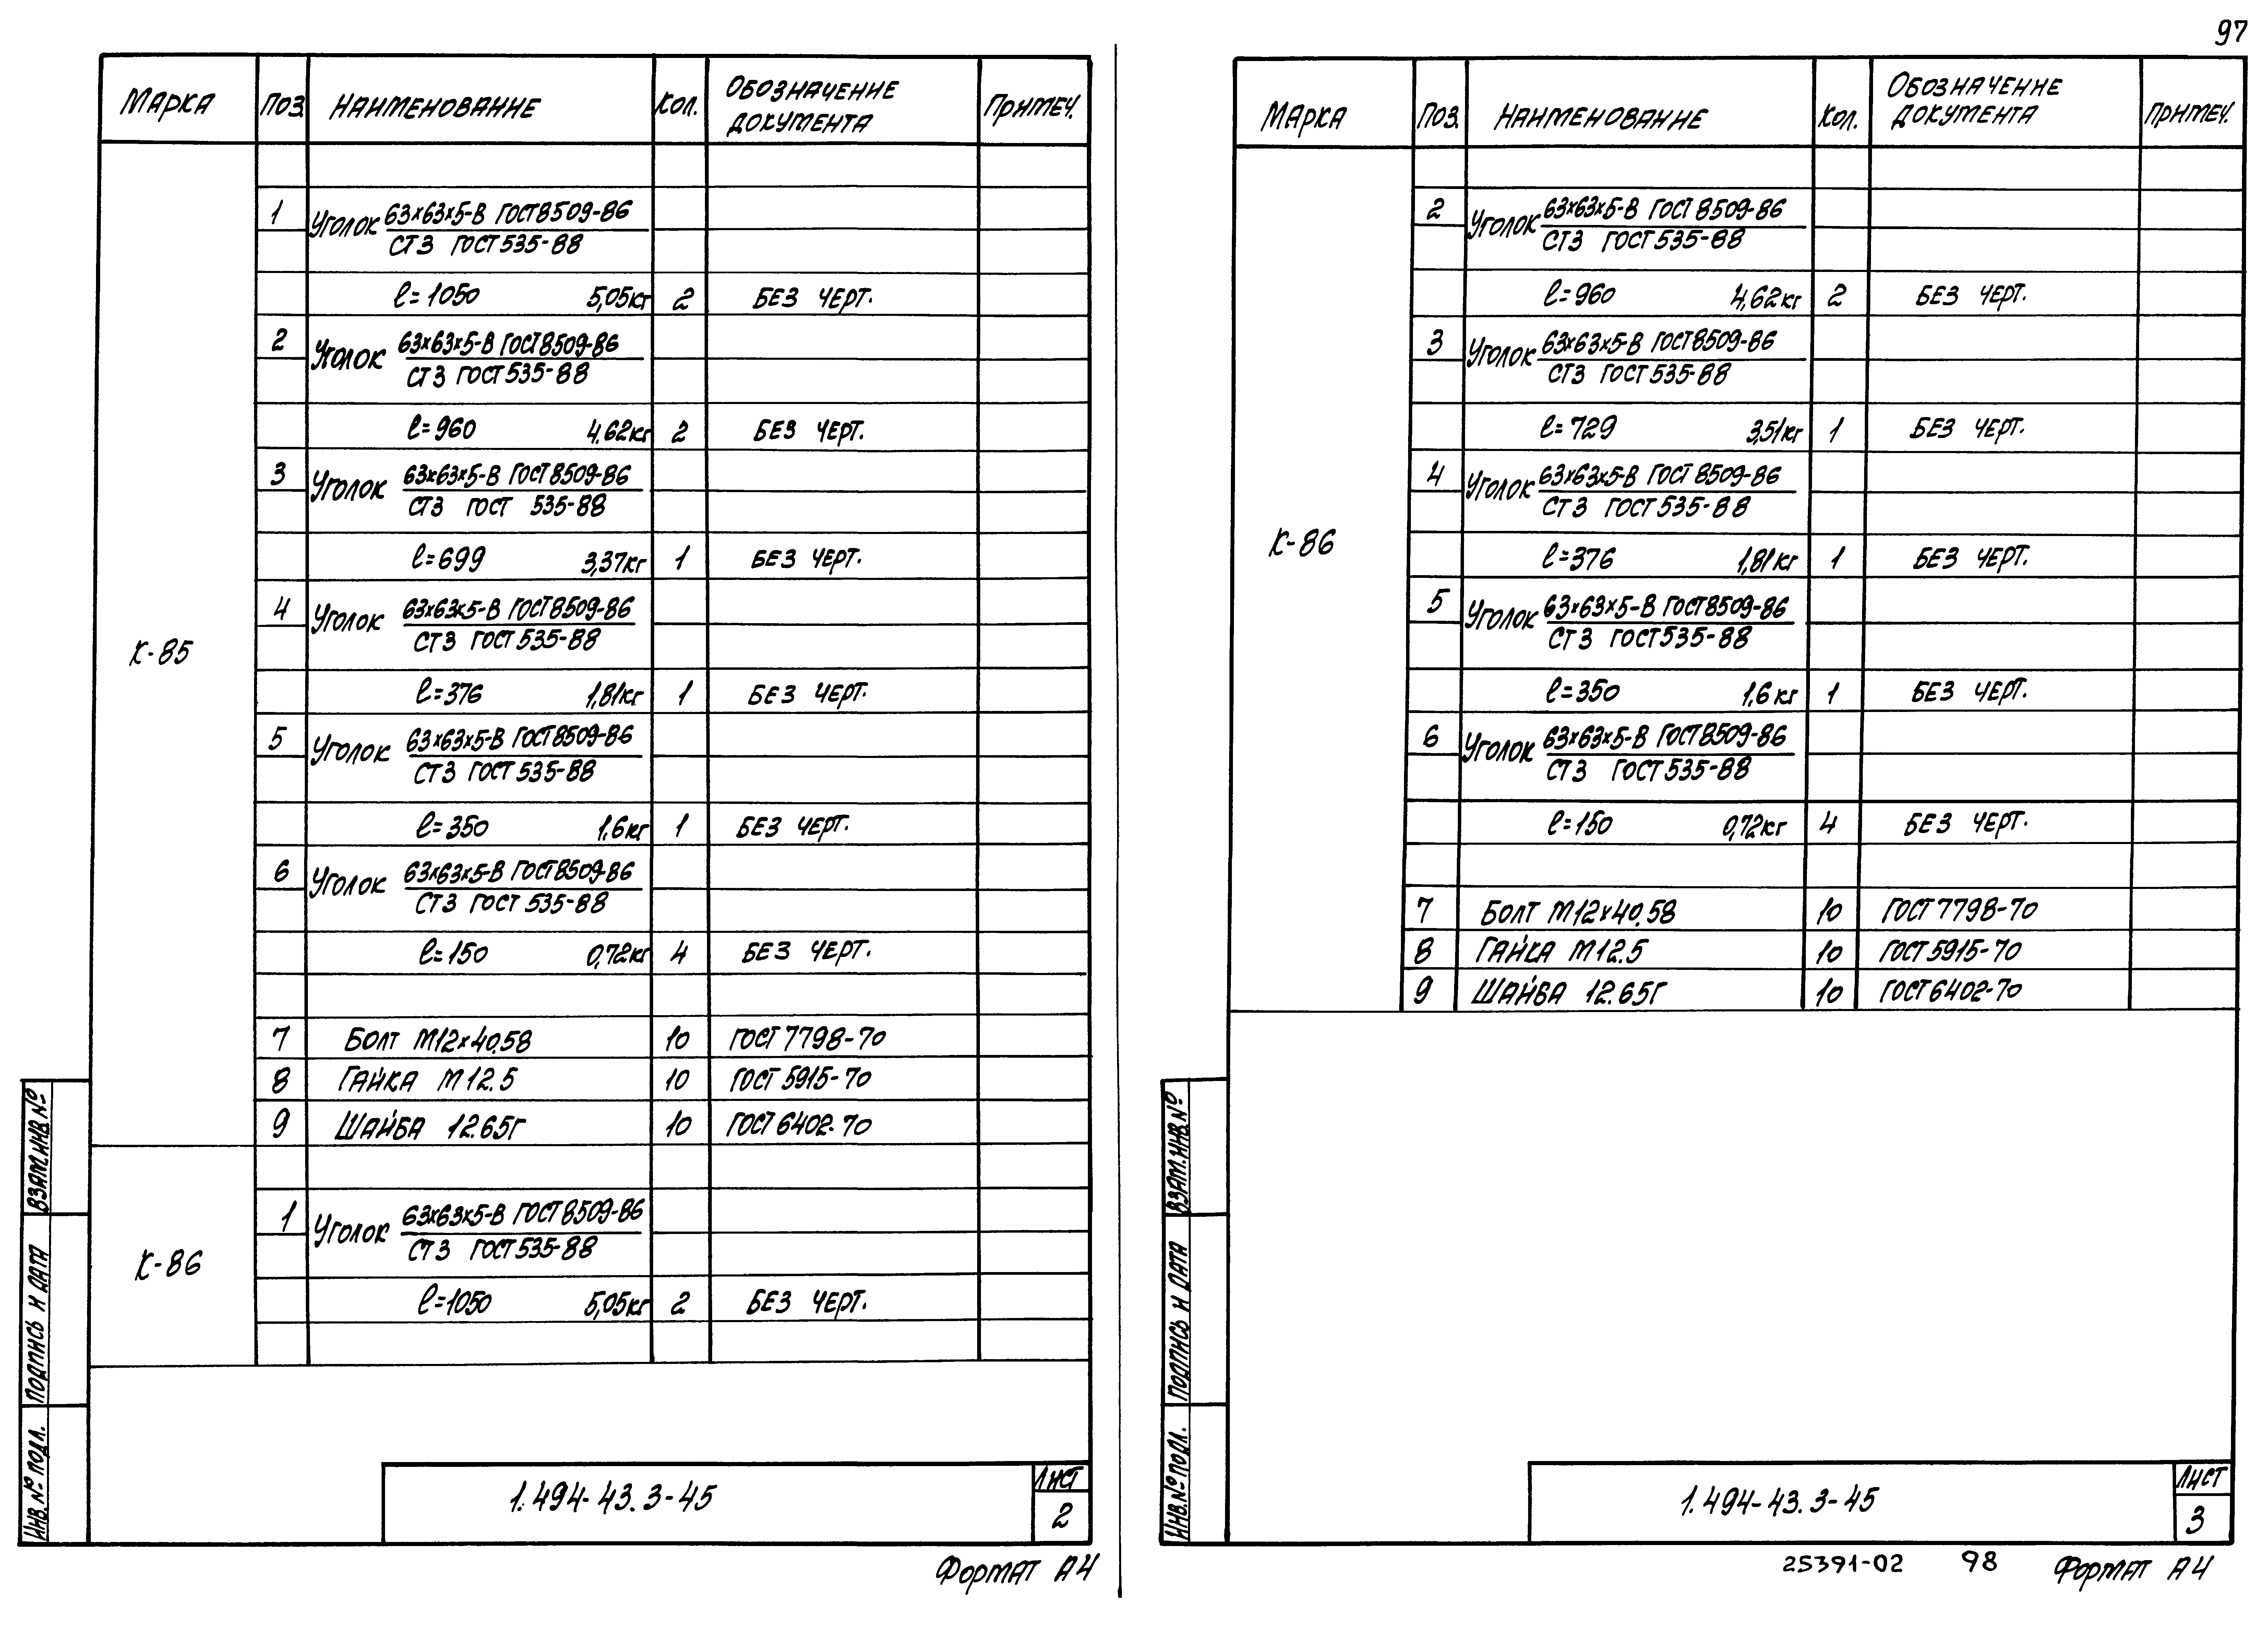 97
МАРКА ПОЗ. НАИМЕНОВАНИЕ КОЛ. ОБОЗНАЧЕНИЕ ДОКУМЕНТА ПРИМЕЧ.
К-85
1 УГОЛОК 63×63×5-В ГОСТ 8509-86
СТ 3 ГОСТ 535-88
ℓ=1050 5,05кг 2 БЕЗ ЧЕРТ.
2 УГОЛОК 63×63×5-В ГОСТ 8509-86
СТ 3 ГОСТ 535-88
ℓ=960 4,62кг 2 БЕЗ ЧЕРТ.
3 УГОЛОК 63×63×5-В ГОСТ 8509-86
СТ 3 ГОСТ 535-88
ℓ=699 3,37кг 1 БЕЗ ЧЕРТ.
4 УГОЛОК 63×63×5-В ГОСТ 8509-86
СТ 3 ГОСТ 535-88
ℓ=376 1,81кг 1 БЕЗ ЧЕРТ.
5 УГОЛОК 63×63×5-В ГОСТ 8509-86
СТ 3 ГОСТ 535-88
ℓ=350 1,6кг 1 БЕЗ ЧЕРТ.
6 УГОЛОК 63×63×5-В ГОСТ 8509-86
СТ 3 ГОСТ 535-88
ℓ=150 0,72кг 4 БЕЗ ЧЕРТ.
7 БОЛТ М12×40.58 10 ГОСТ 7798-70
8 ГАЙКА М12.5 10 ГОСТ 5915-70
9 ШАЙБА 12.65Г 10 ГОСТ 6402-70
К-86
1 УГОЛОК 63×63×5-В ГОСТ 8509-86
СТ 3 ГОСТ 535-88
ℓ=1050 5,05кг 2 БЕЗ ЧЕРТ.
ВЗАМ.ИНВ.№
ПОДПИСЬ И ДАТА
ИНВ.№ ПОДЛ.
1.494-43.3-45
ЛИСТ
2
ФОРМАТ А4
МАРКА ПОЗ. НАИМЕНОВАНИЕ КОЛ. ОБОЗНАЧЕНИЕ ДОКУМЕНТА ПРИМЕЧ.
К-86
2 УГОЛОК 63×63×5-В ГОСТ 8509-86
СТ 3 ГОСТ 535-88
ℓ=960 4,62кг 2 БЕЗ ЧЕРТ.
3 УГОЛОК 63×63×5-В ГОСТ 8509-86
СТ 3 ГОСТ 535-88
ℓ=729 3,51кг 1 БЕЗ ЧЕРТ.
4 УГОЛОК 63×63×5-В ГОСТ 8509-86
СТ 3 ГОСТ 535-88
ℓ=376 1,81кг 1 БЕЗ ЧЕРТ.
5 УГОЛОК 63×63×5-В ГОСТ 8509-86
СТ 3 ГОСТ 535-88
ℓ=350 1,6 кг 1 БЕЗ ЧЕРТ.
6 УГОЛОК 63×63×5-В ГОСТ 8509-86
СТ 3 ГОСТ 535-88
ℓ=150 0,72кг 4 БЕЗ ЧЕРТ.
7 БОЛТ М12×40.58 10 ГОСТ 7798-70
8 ГАЙКА М12.5 10 ГОСТ 5915-70
9 ШАЙБА 12.65Г 10 ГОСТ 6402-70
ВЗАМ.ИНВ.№
ПОДПИСЬ И ДАТА
ИНВ.№ ПОДЛ.
1.494-43.3-45
ЛИСТ
3
25391-02 98 ФОРМАТ А4